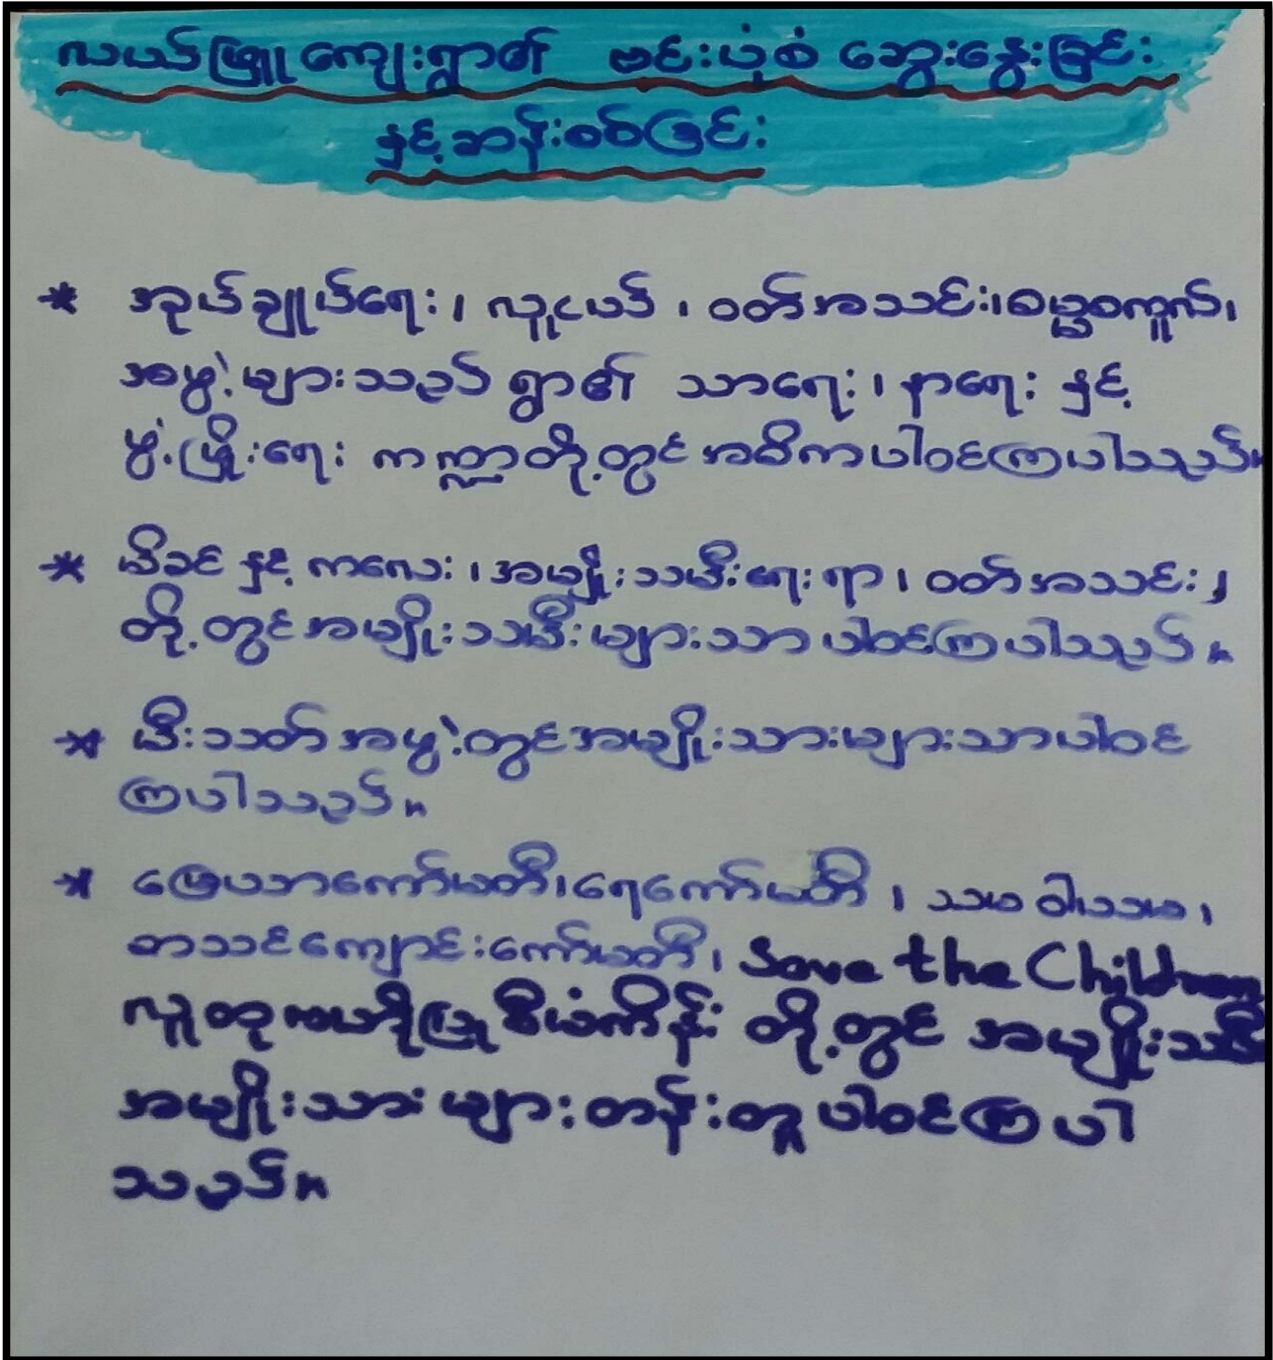 လယ်ဖြူကျေးရွာ၏ ဗင်းပုံစံ ဆွေးနွေးခြင်း
နှင့်ဆန်းစစ်ခြင်း
* အုပ်ချုပ်ရေး၊ လူငယ် ၊ ဝတ်အသင်း၊ဓမ္မစကူးလ်၊
အဖွဲ့များသည် ရွာ၏ သာရေး၊ နာရေး နှင့်
ဖွံ့ဖြိုးရေး ကဏ္ဍတို့တွင် အဓိကပါဝင်ကြပါသည်။
* မိခင် နှင့် ကလေး ၊အမျိုးသမီးရေးရာ ၊ ဝတ်အသင်း၊
တို့တွင်အမျိုးသမီးများသာ ပါဝင်ကြပါသည်။
* မီးသတ်အဖွဲ့တွင်အမျိုးသားများသာပါဝင်
ကြပါသည်။
* မြေယာကော်မတီ၊ရေကော်မတီ ၊ သမဝါယမ ၊
စာသင်ကျောင်းကော်မတီ၊ Save the Children
လူထုကပဲ့ပြုစီမံကိန်း တို့တွင် အမျိုးသမီး
အမျိုးသား များတန်းတူ ပါဝင်ကြပါ
သည်။